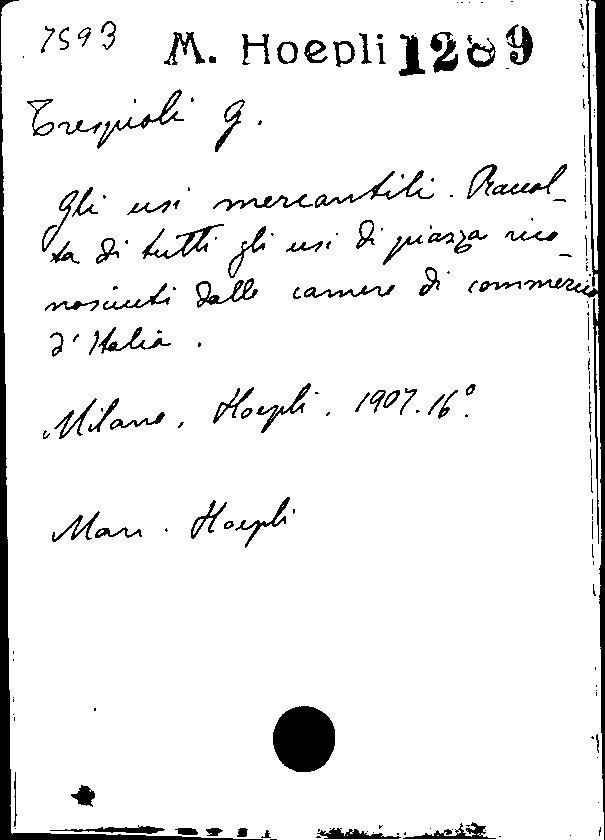 7593 M. Hoepli 1289
Trespioli G.
Gli usi mercantili. Raccol-
ta di tutti gli usi di piazza rico-
nosciuti dalle camere di commercio
d'Italia.
Milano, Hoepli, 1907. 16°.
Man. Hoepli